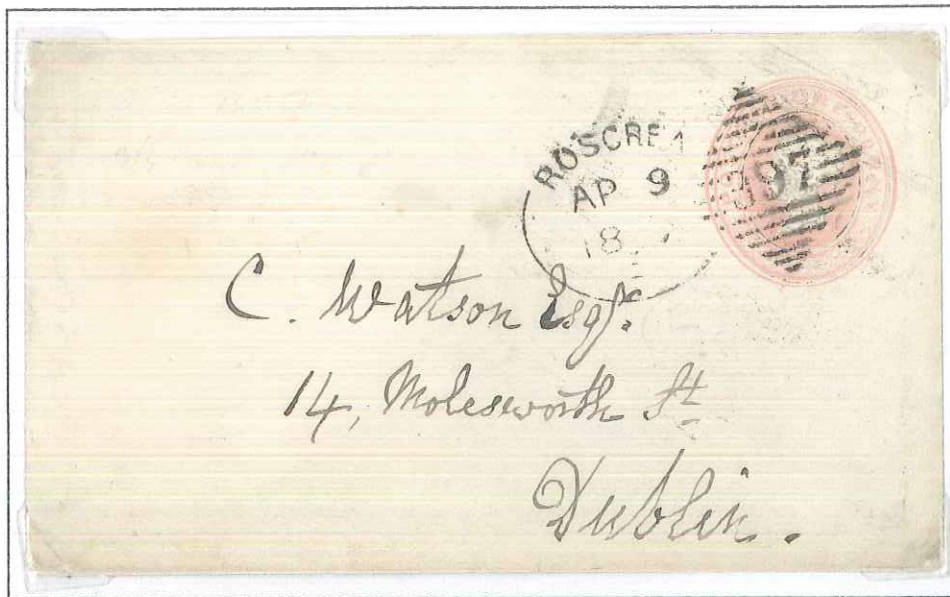 ROSCREA
AP 9
18
397
C. Watson Esqr.
14, Molesworth St
Dublin.